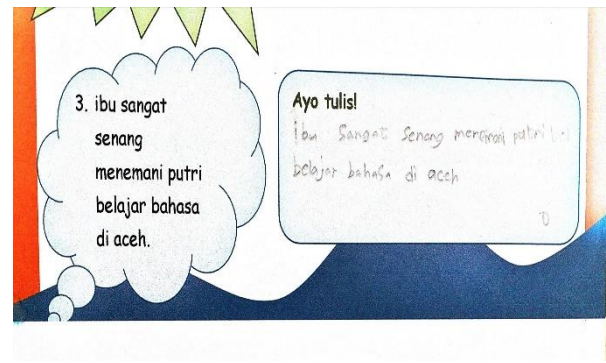 3. ibu sangat
senang
menemani putri
belajar bahasa
di aceh.
Ayo tulis!
ibu Sangat Senang menemani putri
belajar bahasa di aceh